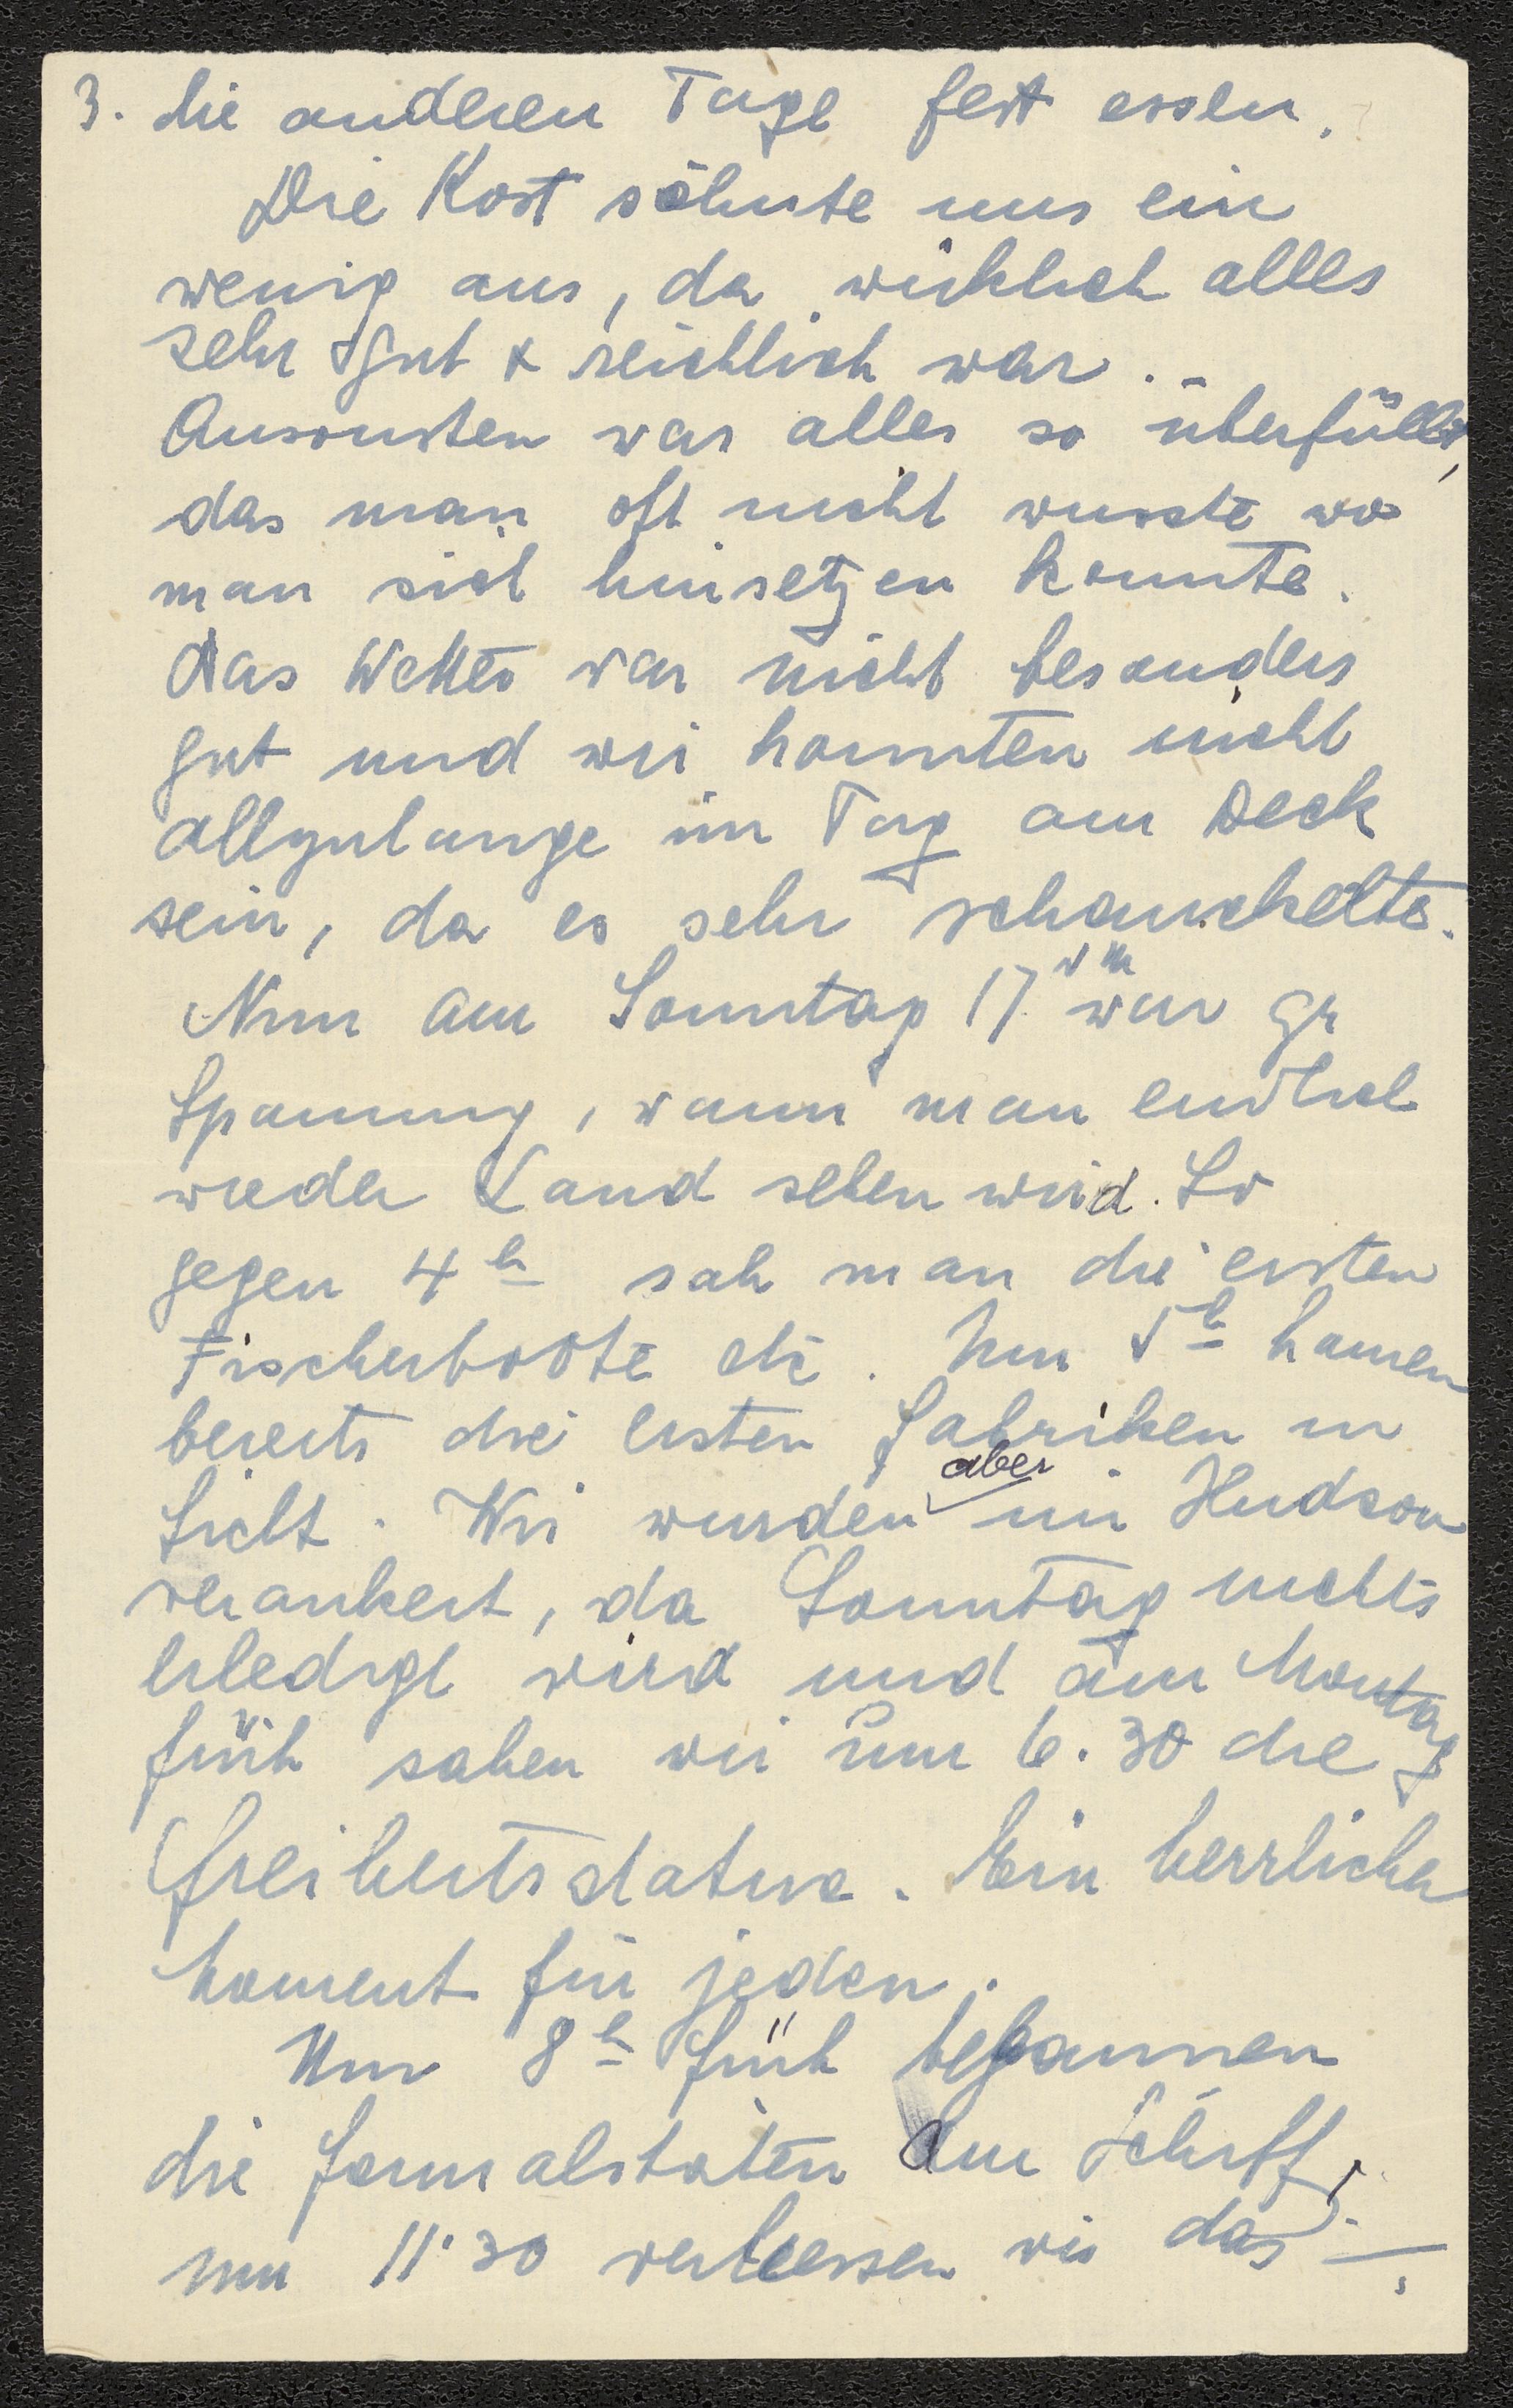 3. die anderen Tage fest essen.
Die Kost söhnte uns ein
wenig aus, da wirklich alles
sehr gut & reichlich war. -
Ansonsten war alles so überfüllt,
das man oft nicht wusste wo
man sich hinsetzen konnte.
Das Wetter war nicht besonders
gut und wir konnten nicht
allzulange im Tag am Deck
sein, da es sehr schauckelte.
Nun am Sonntag 17. war gr
Spannung, wann man endlich
wieder Land sehen wird. So
gegen 4 h sah man die ersten
Fischerboote etc. Um 5 h kamen
bereits die ersten Fabriken in
Sicht. Wir wurden aber im Hudson
verankert, da Sonntag nichts
erledigt wird und am Montag
früh sahen wir um 6.30 die
Freiheitsstatue. Ein herrlicher
Moment für jeden.
Um 8 h früh begannen
die Formalitäten am Schiff,
um 11.30 verliessen wir das —